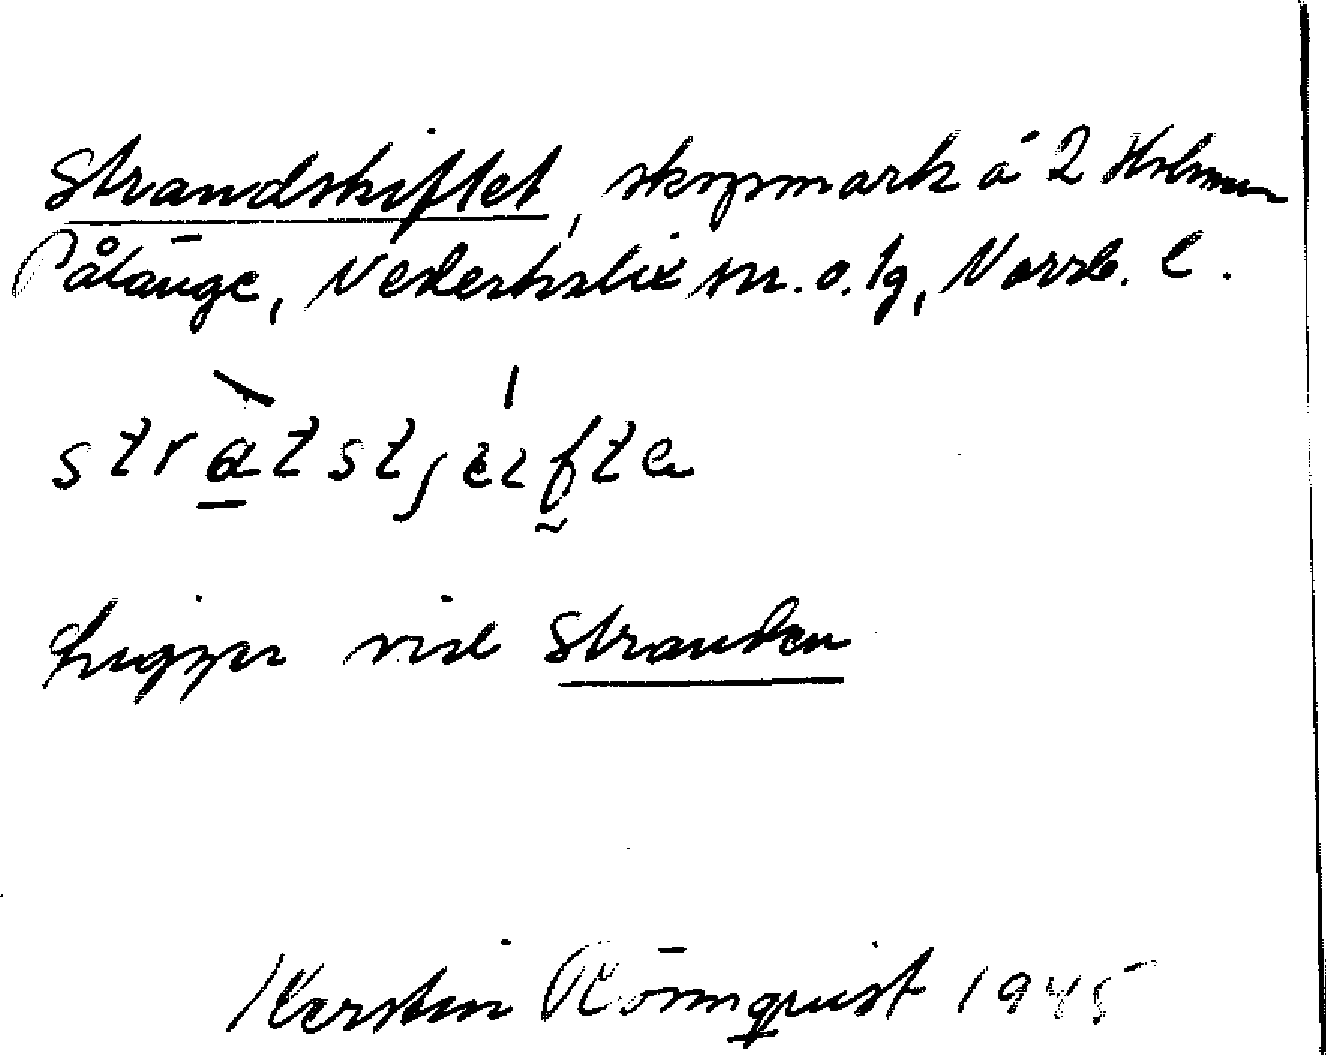 Strandskiftet, skogsmark å 2 Holmen
Pålänge, Nederkalix sn. o. lg, Norrb. l.
stràtstjéɩfte
Ligger vid Stranden
Kerstin Rönnqvist 1945